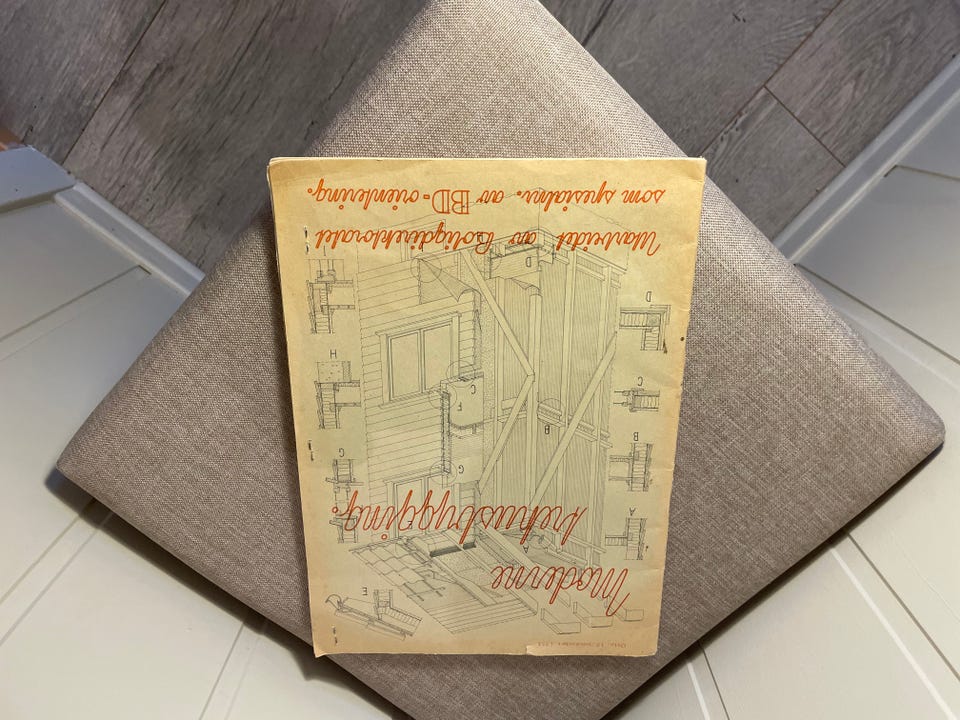 Moderne
trehusbygging.
Utarbeidet av Boligdirektoratet
som spesialnr. av BD-orientering.
E
A
A
B
C
D
G
F
C
B
D
G
H
I